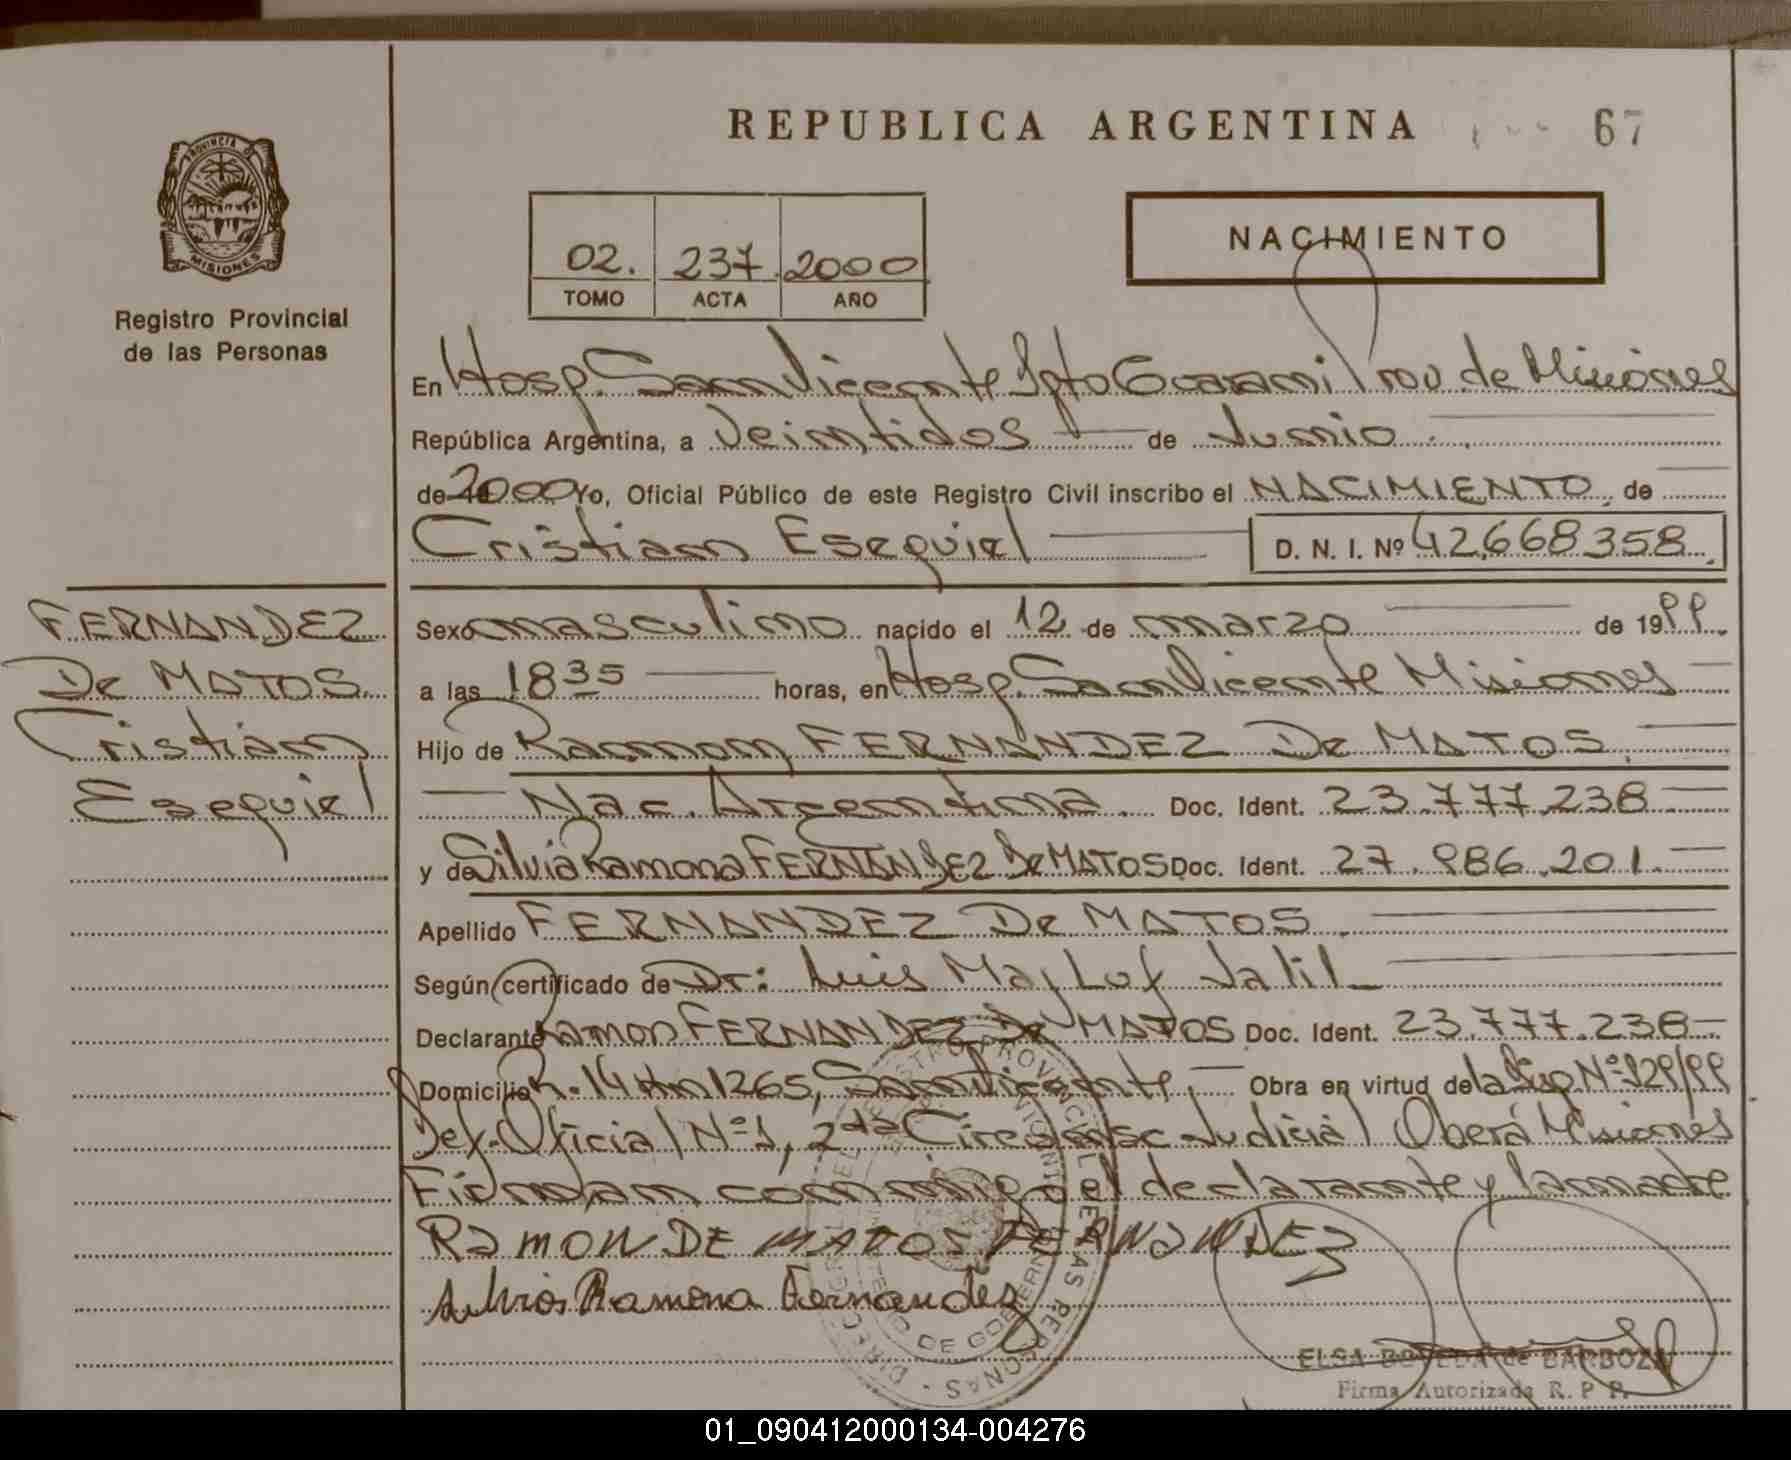 REPUBLICA ARGENTINA
67
PROVINCIA DE
MISIONES
Registro Provincial
de las Personas
02. 237 2000
TOMO ACTA AÑO
NACIMIENTO
En Hosp. San Vicente Dpto Guarani Prov de Misiones
República Argentina, a Veintidos de Junio
de 2000 Yo, Oficial Público de este Registro Civil inscribo el NACIMIENTO de
Cristian Esequiel D. N. I. Nº 42.668.358
FERNANDEZ
De MATOS
Cristian
Esequiel
Sexo masculino nacido el 12 de marzo de 1999
a las 18 35 horas, en Hosp. San Vicente Misiones
Hijo de Ramon FERNANDEZ De MATOS
Nac. Argentina Doc. Ident. 23.777.238
y de Silvia Ramona FERNANDEZ De MATOS Doc. Ident. 27.986.201
Apellido FERNANDEZ De MATOS
Según certificado de Dr: Luis Jalil
Declarante Ramon FERNANDEZ De MATOS Doc. Ident. 23.777.238
Domicilio R. 14 Km 1265, San Vicente Obra en virtud de la Disp Nº 129/99
Def. Oficial Nº 1, 2da Circunsc Judicial Oberá Misiones
Firman conmigo el declarante y la madre
RAMON DE MATOS FERNANDEZ
Silvia Ramona Fernandez
ELSA BOVEDA de BARBOZA
Firma Autorizada R. P. P.
01_090412000134-004276